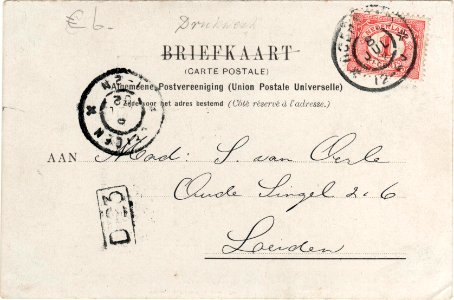 €6.- Drukwerk
BRIEFKAART
(CARTE POSTALE)
Algemeene Postvereeniging (Union Postale Universelle)
Zijde voor het adres bestemd (Côté réservé à l'adresse.)
NEDERLAND
AAN Mad: S. van Oerle
Oude Singel 2.6
Leiden
D 23